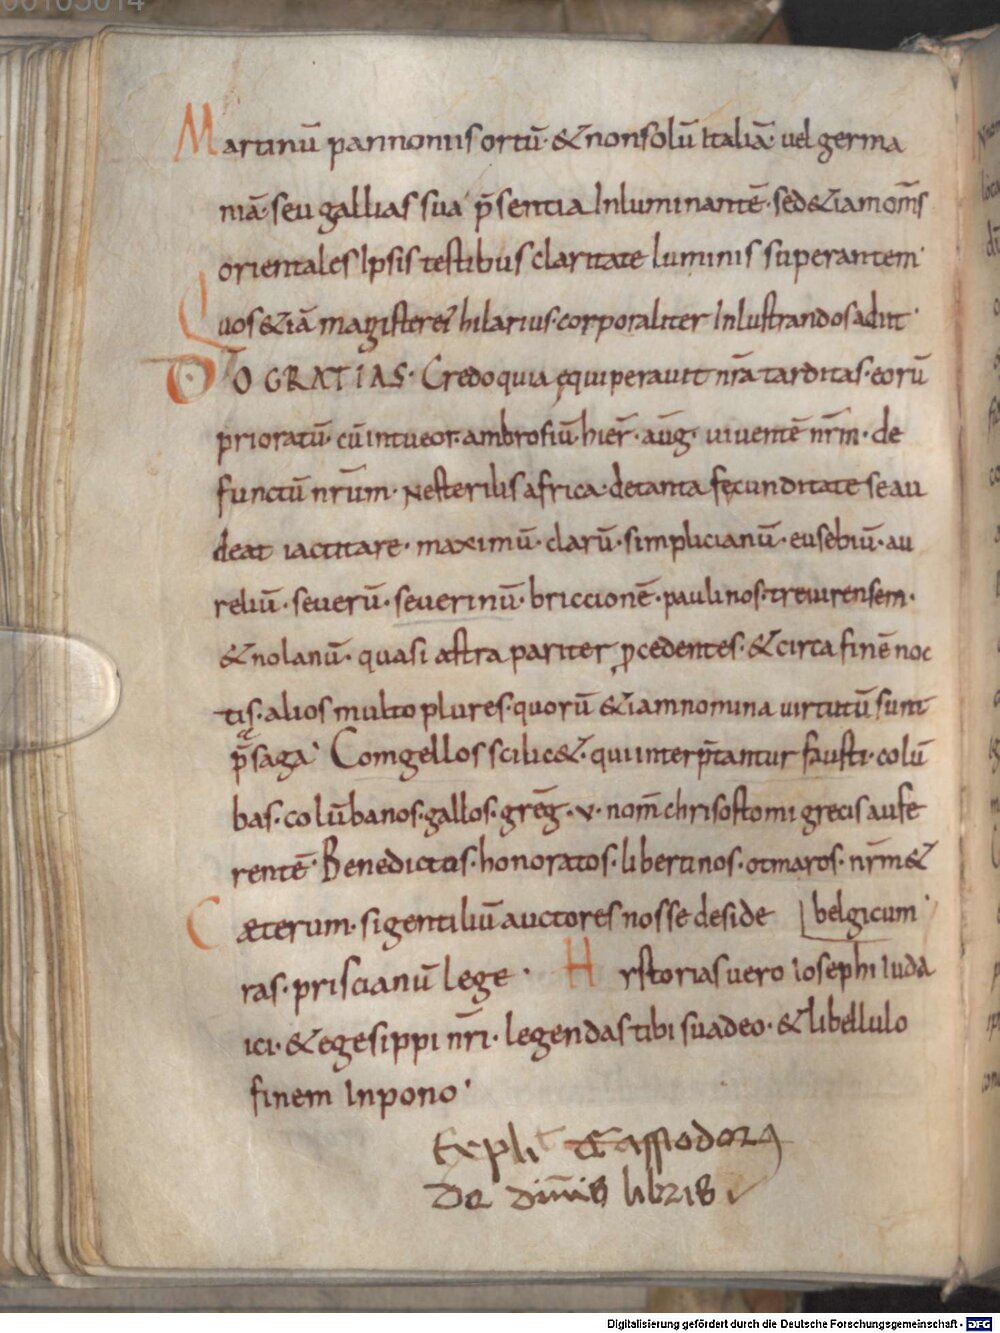 00105014
Martinū pannoniis ortū· & non solū Italiā· uel germa
niā· seu gallias sua p̄sentia Inluminantē· sed & iam om̄s
orientales Ipsis testibus claritate luminis superantem·
Quos & iā magister ei hilarius· corporaliter Inlustrandos adiit·
D̄O GRATIAS· Credo quia ęquiperauit nr̄a tarditas· eorū
prioratū· cū intueor· ambrosiū· hier̄· aūg· uiuentē nr̄m· de
functū nr̄um· Ne sterilis africa· de tanta fęcunditate se au
deat iactitare· maximū· clarū· simplicianū· eusebiū· au
reliū· seuerū· seuerinū· briccionē· paulinos· treuirensem·
& nolanū· quasi astra pariter ꝓcedentes· & circa finē noc
tis· alios multo plures· quorū & iam nomina uirtutū sunt
p̄saga· Comgellos scilic&· qui interp̄tantur fausti· colū
bas· colūbanos· gallos· grēg· v· nom̄ chrisostomi grecis aufe
rentē· Benedictus· honoratos· libertinos· otmaros· nr̄m &
Cæterum· si gentiliū auctores nosse deside belgicum·
ras· priscianū lege· Hystorias uero Iosephi Iuda
ici· & egesippi nr̄i· legendas tibi suadeo· & libellulo
finem Inpono·
Expli Cassiodorꝰ
de diuīis libris
Digitalisierung gefördert durch die Deutsche Forschungsgemeinschaft - DFG